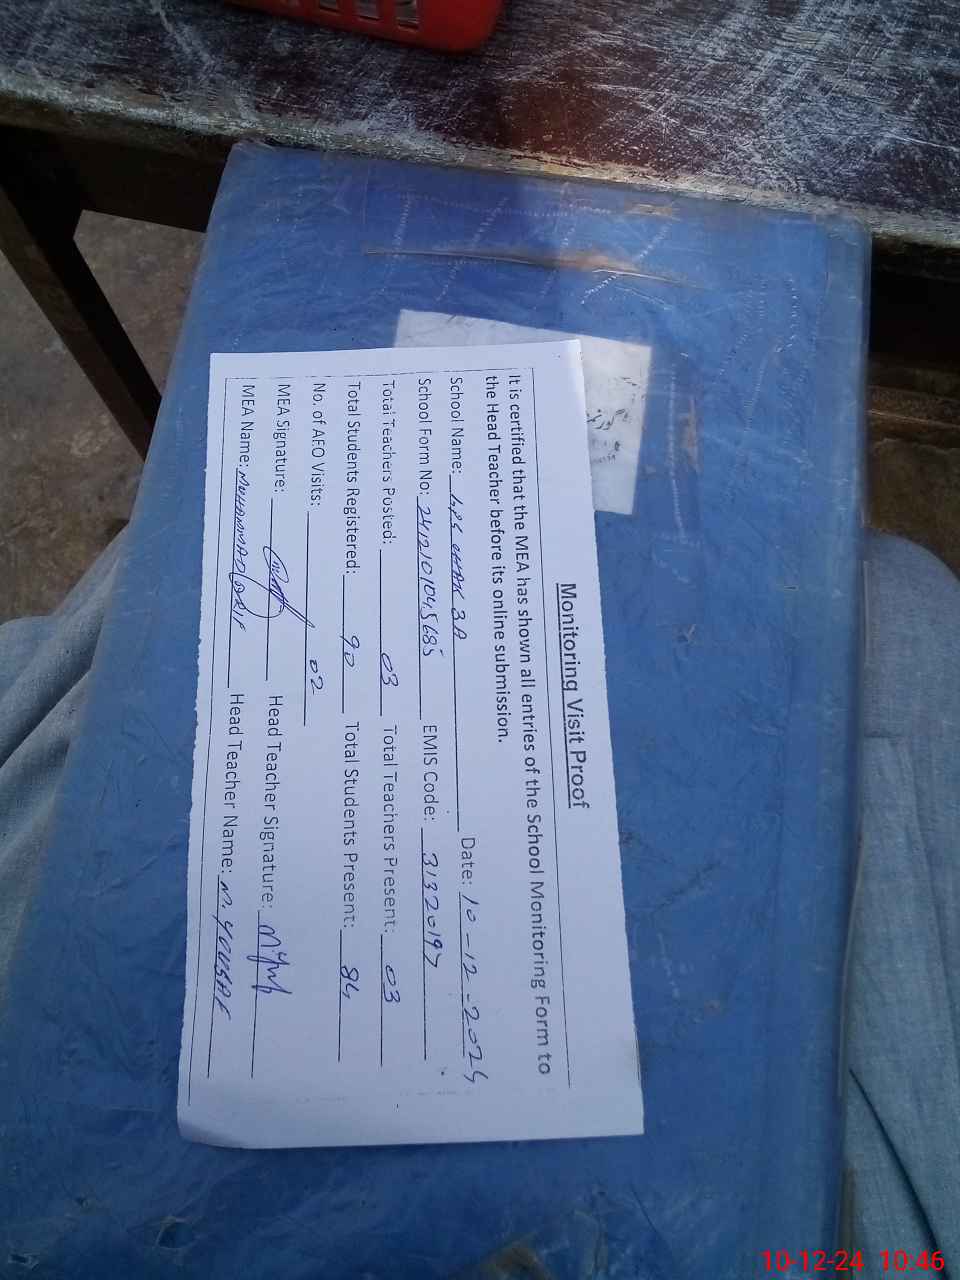 Monitoring Visit Proof
It is certified that the MEA has shown all entries of the School Monitoring Form to
the Head Teacher before its online submission.
School Name: GPS CHAK 3A Date: 10-12-2024
School Form No: EMIS Code: 31320197
Total Teachers Posted: 03 Total Teachers Present: 03
Total Students Registered: 90 Total Students Present: 84
No. of AEO Visits: 02
MEA Signature: Head Teacher Signature:
MEA Name: MUHAMMAD ARIF Head Teacher Name: M. YOUSAF
10-12-24 10:46